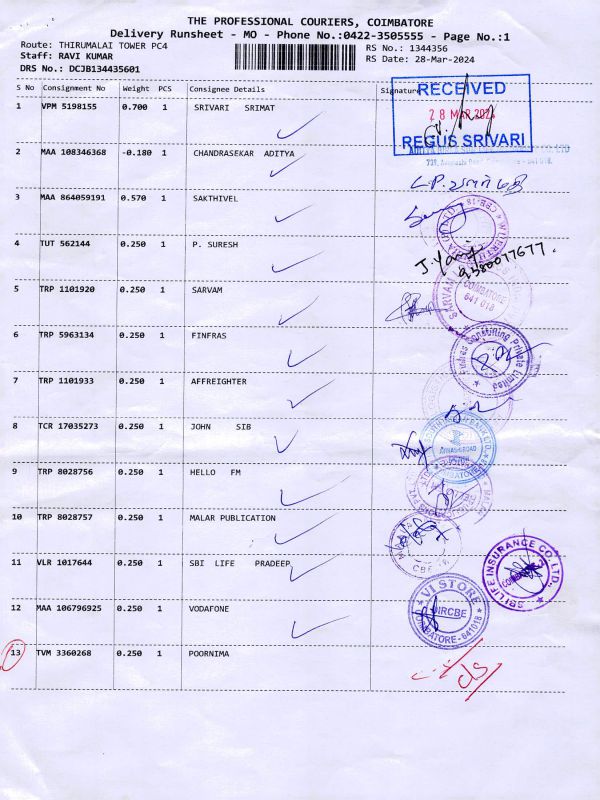 THE PROFESSIONAL COURIERS, COIMBATORE
Delivery Runsheet - MO - Phone No.:0422-3505555 - Page No.:1
Route: THIRUMALAI TOWER PC4 RS No.: 1344356
Staff: RAVI KUMAR RS Date: 28-Mar-2024
DRS No.: DCJB134435601
S No Consignment No Weight PCS Consignee Details Signature
RECEIVED
28 MAR 2024
REGUS SRIVARI
1 VPM 5198155 0.700 1 SRIVARI SRIMAT
2 MAA 108346368 -0.180 1 CHANDRASEKAR ADITYA
3 MAA 864059191 0.570 1 SAKTHIVEL
4 TUT 562144 0.250 1 P. SURESH
9380077677.
5 TRP 1101920 0.250 1 SARVAM
COIMBATORE
641 018
6 TRP 5963134 0.250 1 FINFRAS
Private Limited
7 TRP 1101933 0.250 1 AFFREIGHTER
8 TCR 17035273 0.250 1 JOHN SIB
AVINASHI ROAD
9 TRP 8028756 0.250 1 HELLO FM
10 TRP 8028757 0.250 1 MALAR PUBLICATION
11 VLR 1017644 0.250 1 SBI LIFE PRADEEP
SBI LIFE INSURANCE CO. LTD.,
12 MAA 106796925 0.250 1 VODAFONE
VI STORE
DIRCBE
COIMBATORE-641018
13 TVM 3360268 0.250 1 POORNIMA